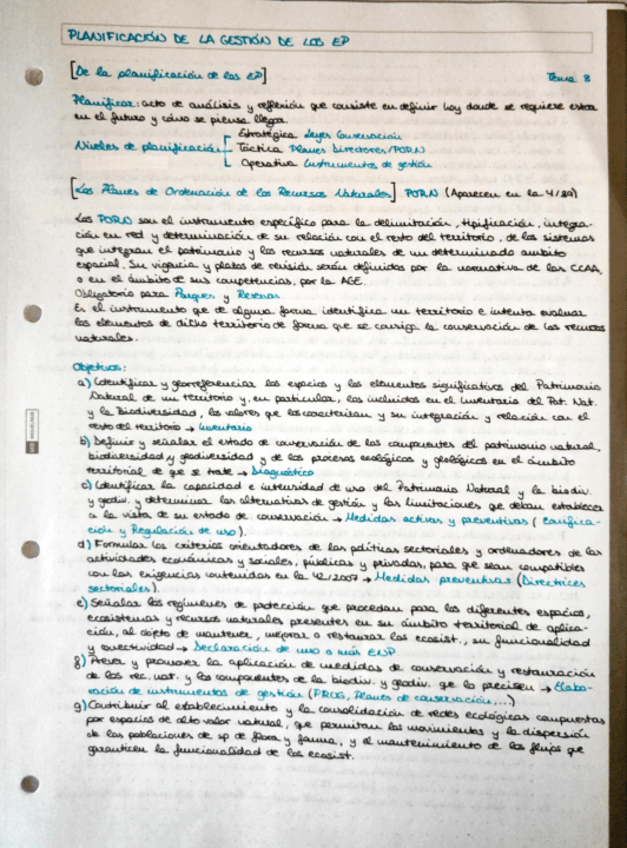 PLANIFICACIÓN DE LA GESTIÓN DE LOS EP
[De la planificación de los EP] Tema 8
Planificar: acto de análisis y reflexión que consiste en definir hoy donde se requiere estar
en el futuro y cómo se piensa llegar.
Estratégica Leyes Conservación
Niveles de planificación Táctica Planes Directores/PORN
Operativa Instrumentos de gestión
[Los Planes de Ordenación de los Recursos Naturales] PORN (Aparecen en la 4/89)
Los PORN son el instrumento específico para la delimitación, tipificación, integra-
ción en red y determinación de su relación con el resto del territorio, de los sistemas
que integran el patrimonio y los recursos naturales de un determinado ámbito
espacial. Su vigencia y plazos de revisión serán definidos por la normativa de las CCAA,
o en el ámbito de sus competencias, por la AGE.
Obligatorio para Parques y Reservas
Es el instrumento que de alguna forma identifica un territorio e intenta evaluar
los elementos de dicho territorio de forma que se consiga la conservación de los recursos
naturales.
Objetivos:
a) Identificar y georreferenciar los espacios y los elementos significativos del Patrimonio
Natural de un territorio y, en particular, los incluidos en el inventario del Pat. Nat.
y la Biodiversidad, los valores que los caracterizan y su integración y relación con el
resto del territorio → Inventario
b) Definir y señalar el estado de conservación de los componentes del patrimonio natural,
biodiversidad y geodiversidad y de los procesos ecológicos y geológicos en el ámbito
territorial de que se trate → Diagnóstico
c) Identificar la capacidad e intensidad de uso del Patrimonio Natural y la biodiv.
y geodiv. y determinar las alternativas de gestión y las limitaciones que deban establecer
a la vista de su estado de conservación → Medidas activas y preventivas (Zonifica-
ción y Regulación de uso).
d) Formular los criterios orientadores de las políticas sectoriales y ordenadores de las
actividades económicas y sociales, públicas y privadas, para que sean compatibles
con las exigencias contenidas en la 42/2007 → Medidas preventivas (Directrices
sectoriales).
e) Señalar los regímenes de protección que procedan para los diferentes espacios,
ecosistemas y recursos naturales presentes en su ámbito territorial de aplica-
ción, al objeto de mantener, mejorar o restaurar los ecosist., su funcionalidad
y conectividad → Declaración de uno o más ENP
f) Prever y promover la aplicación de medidas de conservación y restauración
de los rec. nat. y los componentes de la biodiv. y geodiv. que lo precisen → Elabo-
ración de instrumentos de gestión (PRUG, Planes de conservación,...)
g) Contribuir al establecimiento y la consolidación de redes ecológicas compuestas
por espacios de alto valor natural, que permitan los movimientos y la dispersión
de las poblaciones de sp de flora y fauna, y el mantenimiento de los flujos que
garanticen la funcionalidad de los ecosist.